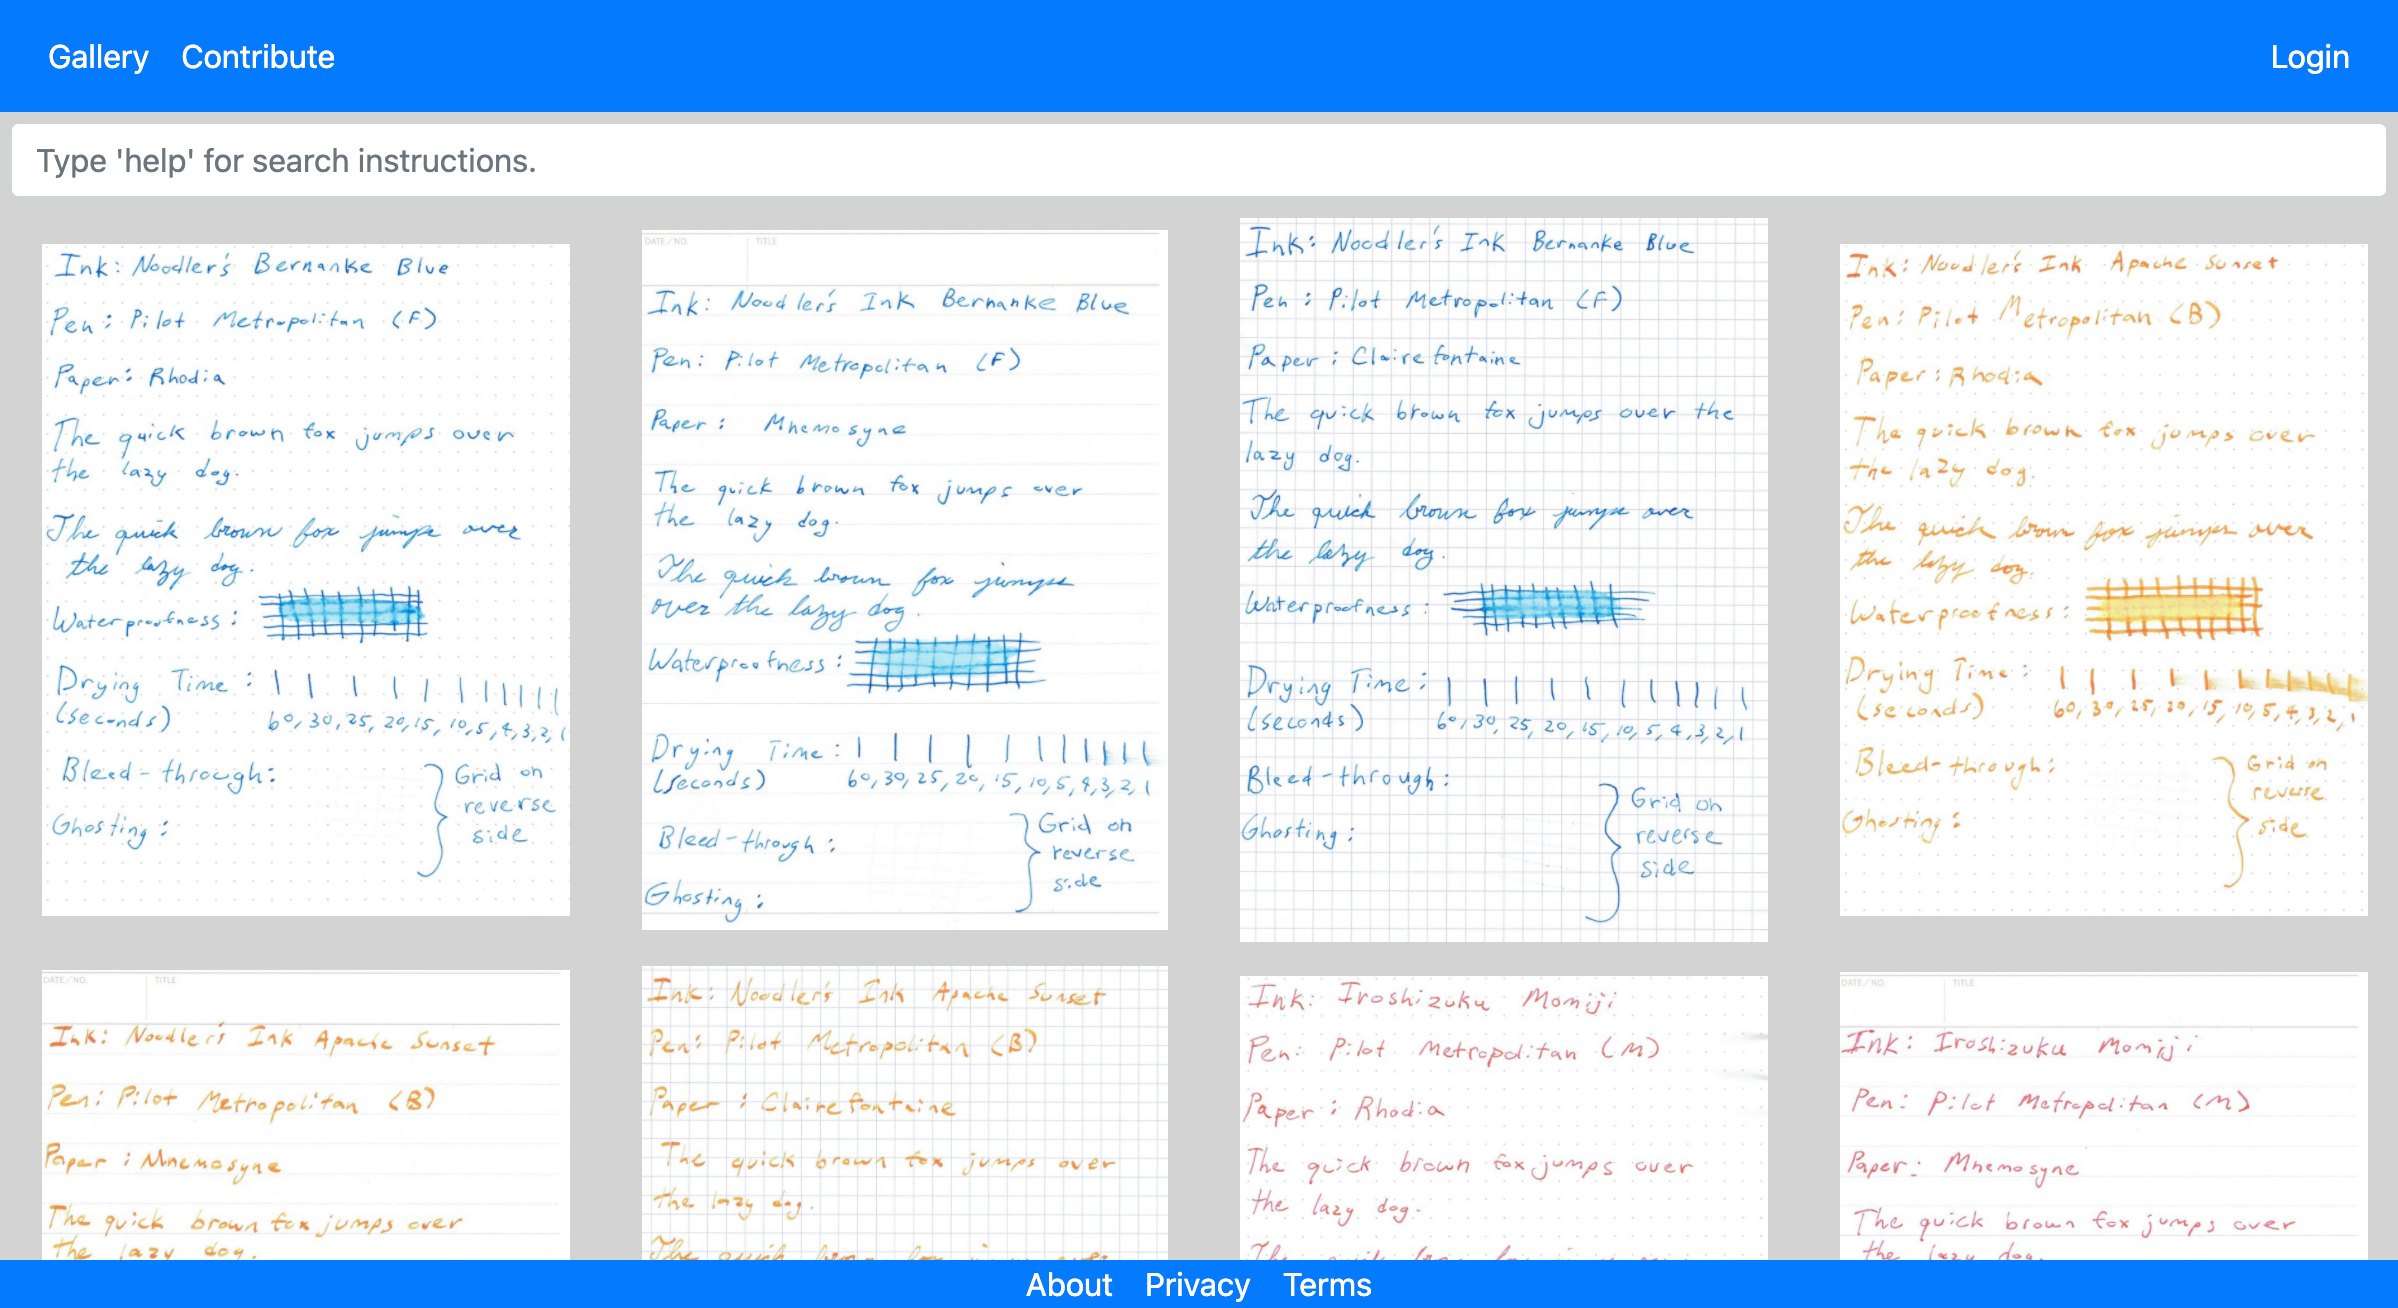 Gallery Contribute Login
Type 'help' for search instructions.
Ink: Noodler's Bernanke Blue
Pen: Pilot Metropolitan (F)
Paper: Rhodia
The quick brown fox jumps over
the lazy dog.
The quick brown fox jumps over
the lazy dog.
Waterproofness:
Drying Time:
(seconds) 60, 30, 25, 20, 15, 10, 5, 4, 3, 2, 1
Bleed-through:
Ghosting:
Grid on
reverse
side
DATE/NO. TITLE
Ink: Noodler's Ink Bernanke Blue
Pen: Pilot Metropolitan (F)
Paper: Mnemosyne
The quick brown fox jumps over
the lazy dog.
The quick brown fox jumps
over the lazy dog.
Waterproofness:
Drying Time:
(seconds) 60, 30, 25, 20, 15, 10, 5, 4, 3, 2, 1
Bleed-through:
Ghosting:
Grid on
reverse
side
Ink: Noodler's Ink Bernanke Blue
Pen: Pilot Metropolitan (F)
Paper: Clairefontaine
The quick brown fox jumps over the
lazy dog.
The quick brown fox jumps over
the lazy dog.
Waterproofness:
Drying Time:
(seconds) 60, 30, 25, 20, 15, 10, 5, 4, 3, 2, 1
Bleed-through:
Ghosting:
Grid on
reverse
side
Ink: Noodler's Ink Apache Sunset
Pen: Pilot Metropolitan (B)
Paper: Rhodia
The quick brown fox jumps over
the lazy dog.
The quick brown fox jumps over
the lazy dog.
Waterproofness:
Drying Time:
(seconds) 60, 30, 25, 20, 15, 10, 5, 4, 3, 2, 1
Bleed-through:
Ghosting:
Grid on
reverse
side
DATE/NO. TITLE
Ink: Noodler's Ink Apache Sunset
Pen: Pilot Metropolitan (B)
Paper: Mnemosyne
The quick brown fox jumps over
the lazy dog.
Ink: Noodler's Ink Apache Sunset
Pen: Pilot Metropolitan (B)
Paper: Clairefontaine
The quick brown fox jumps over
the lazy dog.
Ink: Iroshizuku Momiji
Pen: Pilot Metropolitan (M)
Paper: Rhodia
The quick brown fox jumps over
the lazy dog.
DATE/NO. TITLE
Ink: Iroshizuku Momiji
Pen: Pilot Metropolitan (M)
Paper: Mnemosyne
The quick brown fox jumps over
the lazy dog.
About Privacy Terms